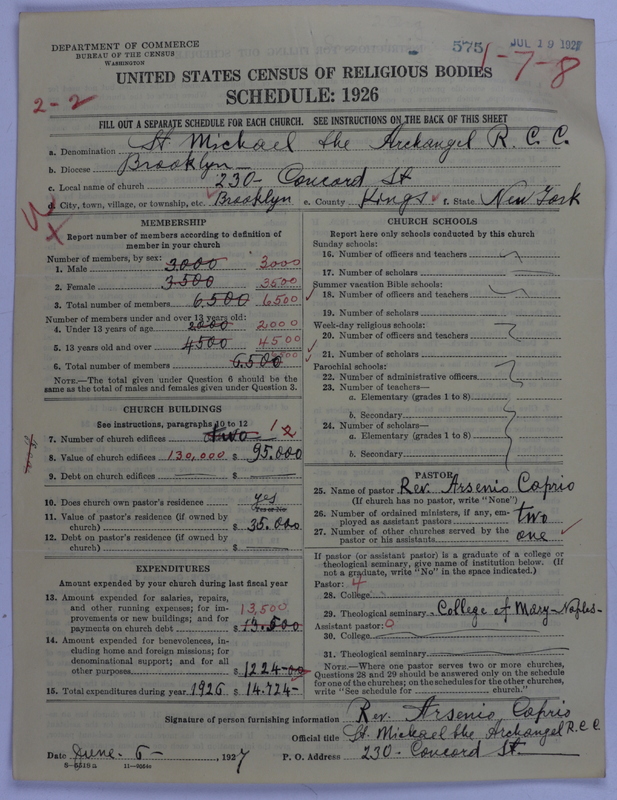 DEPARTMENT OF COMMERCE
BUREAU OF THE CENSUS
WASHINGTON
575 JUL 19 1927
1-7-8
UNITED STATES CENSUS OF RELIGIOUS BODIES
2-2
SCHEDULE: 1926
FILL OUT A SEPARATE SCHEDULE FOR EACH CHURCH. SEE INSTRUCTIONS ON THE BACK OF THIS SHEET
a. Denomination St. Michael the Archangel R. C. C.
b. Diocese Brooklyn
c. Local name of church 230- Concord St
d. City, town, village, or township, etc. Brooklyn e. County Kings f. State New York
MEMBERSHIP
Report number of members according to definition of
member in your church
Number of members, by sex:
1. Male 3000 3000
2. Female 3500 3500
3. Total number of members 6,500 6500
Number of members under and over 13 years old:
4. Under 13 years of age 2000 2000
5. 13 years old and over 4500 4500
6. Total number of members 6.500
NOTE.—The total given under Question 6 should be the
same as the total of males and females given under Question 3.
CHURCH BUILDINGS
See instructions, paragraphs 10 to 12
7. Number of church edifices two 1 2
8. Value of church edifices 130,000 $ 95.000
9. Debt on church edifices $
10. Does church own pastor's residence yes
Yes or No
11. Value of pastor's residence (if owned by
church) $ 35.000
12. Debt on pastor's residence (if owned by
church) $
EXPENDITURES
Amount expended by your church during last fiscal year
13. Amount expended for salaries, repairs,
and other running expenses; for im-
provements or new buildings; and for
payments on church debt 13,500 $ 13.500
14. Amount expended for benevolences, in-
cluding home and foreign missions; for
denominational support; and for all
other purposes $ 1224-00
15. Total expenditures during year 1926 $ 14.724-
CHURCH SCHOOLS
Report here only schools conducted by this church
Sunday schools:
16. Number of officers and teachers
17. Number of scholars
Summer vacation Bible schools:
18. Number of officers and teachers
19. Number of scholars
Week-day religious schools:
20. Number of officers and teachers
21. Number of scholars
Parochial schools:
22. Number of administrative officers
23. Number of teachers—
a. Elementary (grades 1 to 8)
b. Secondary
24. Number of scholars—
a. Elementary (grades 1 to 8)
b. Secondary
PASTOR
25. Name of pastor Rev. Arsenio Caprio
(If church has no pastor, write "None")
26. Number of ordained ministers, if any, em-
ployed as assistant pastors two
27. Number of other churches served by the
pastor or his assistants one
If pastor (or assistant pastor) is a graduate of a college or
theological seminary, give name of institution below. (If
not a graduate, write "No" in the space indicated.)
Pastor: 4
28. College
29. Theological seminary College of Mary-Naples-
Assistant pastor: 0
30. College
31. Theological seminary
NOTE.—Where one pastor serves two or more churches,
Questions 28 and 29 should be answered only on the schedule
for one of the churches; on the schedules for the other churches,
write "See schedule for church."
Signature of person furnishing information Rev. Arsenio Caprio
Official title St. Michael the Archangel R.C.C.
Date June 6-, 1927 P. O. Address 230- Concord St.
8-5518a 11-9664